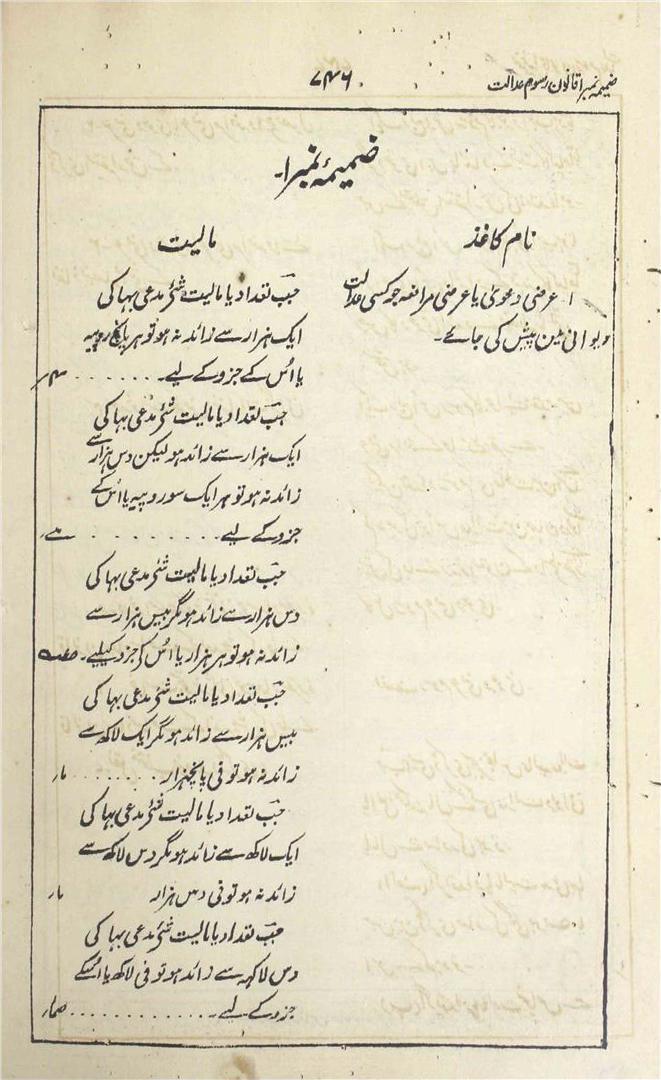 ضمیمہ نمبر۱ قانون رسوم عدالت
۷۴۶
ضمیمۂ نمبر۱۔
نام کاغذ
۱۔ عرضی دعویٰ یا عرضی مرافعہ جو کسی عدالت
دیوانی مین پیش کی جاۓ۔
مالیت
جب تعداد یا مالیت شئ مدعی بہا کی
ایک ہزار سے زائد نہ ہو تو ہر پانچ روپیہ
یا اُس کے جزو کے لیے۔......
جب تعداد یا مالیت شئ مدعی بہا کی
ایک ہزار سے زائد ہو لیکن دس ہزار سے
زائد نہ ہو تو ہر ایک سو روپیہ یا اُس کے
جزو کے لیے۔........
جب تعداد یا مالیت شئ مدعی بہا کی
دس ہزار سے زائد ہو مگر بیس ہزار سے
زائد نہ ہو تو ہر ہزار یا اُس کے جزو کیلیے۔
جب تعداد یا مالیت شئ مدعی بہا کی
بیس ہزار سے زائد ہو مگر ایک لاکھ سے
زائد نہ ہو تو فی پانچہزار........
جب تعداد یا مالیت شئ مدعی بہا کی
ایک لاکھ سے زائد ہو مگر دس لاکھ سے
زائد نہ ہو تو فی دس ہزار
جب تعداد یا مالیت شئ مدعی بہا کی
دس لاکہہ سے زائد ہو تو فی لاکھ یا اُسکے
جزو کے لیے۔............